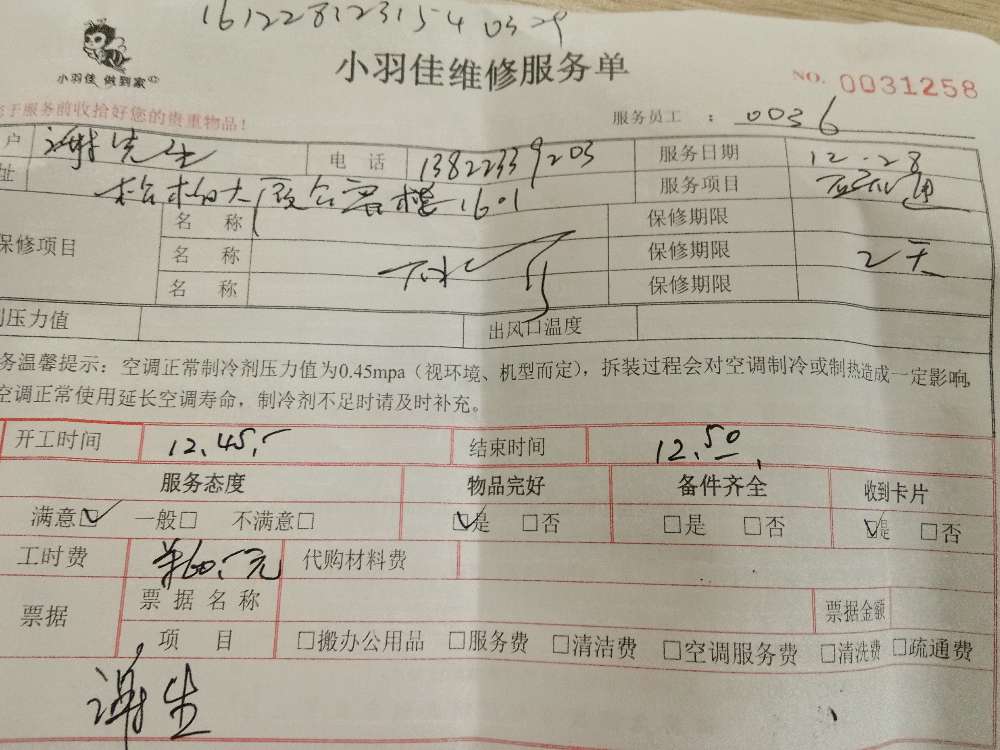 1612281231540329
小羽佳 做到家
小羽佳维修服务单
NO. 0031258
于服务前收拾好您的贵重物品!
服务员工 : 0036
户 谢先生 电 话 13822339203 服务日期 12.28
址 松柏大厦公寓楼1601 服务项目 通
保修项目 名 称 保修期限
名 称 保修期限 2天
名 称 保修期限
剂压力值 出风口温度
务温馨提示：空调正常制冷剂压力值为0.45mpa（视环境、机型而定），拆装过程会对空调制冷或制热造成一定影响,
空调正常使用延长空调寿命，制冷剂不足时请及时补充。
开工时间 12.45. 结束时间 12.50.
服务态度 物品完好 备件齐全 收到卡片
满意☑ 一般□ 不满意□ ☑是 □否 □是 □否 ☑是 □否
工时费 单60.元 代购材料费
票据 票据名称 票据金额
项 目 □搬办公用品 □服务费 □清洁费 □空调服务费 □清洗费 □疏通费
谢生